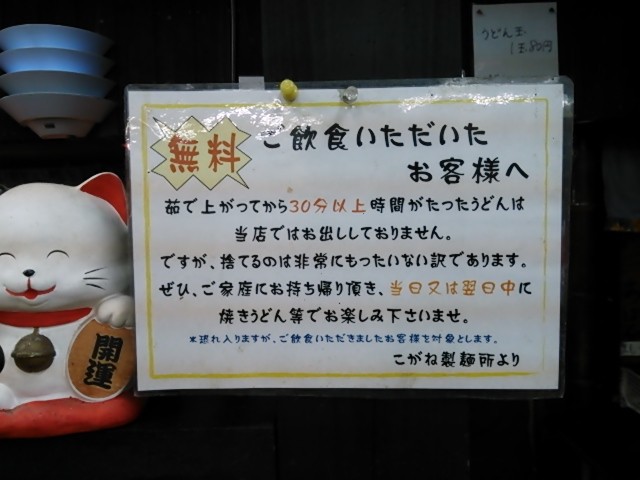 うどん玉
1玉80円
無料
ご飲食いただいた
お客様へ
茹で上がってから30分以上時間がたったうどんは
当店ではお出ししておりません。
ですが、捨てるのは非常にもったいない訳であります。
ぜひ、ご家庭にお持ち帰り頂き、当日又は翌日中に
焼きうどん等でお楽しみ下さいませ。
※恐れ入りますが、ご飲食いただきましたお客様を対象とします。
こがね製麺所より
開運